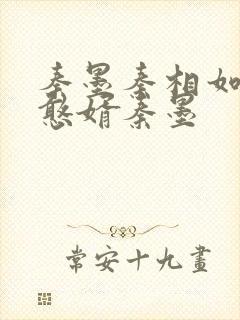 秦墨秦相如
憨婿秦墨
常安十九畫